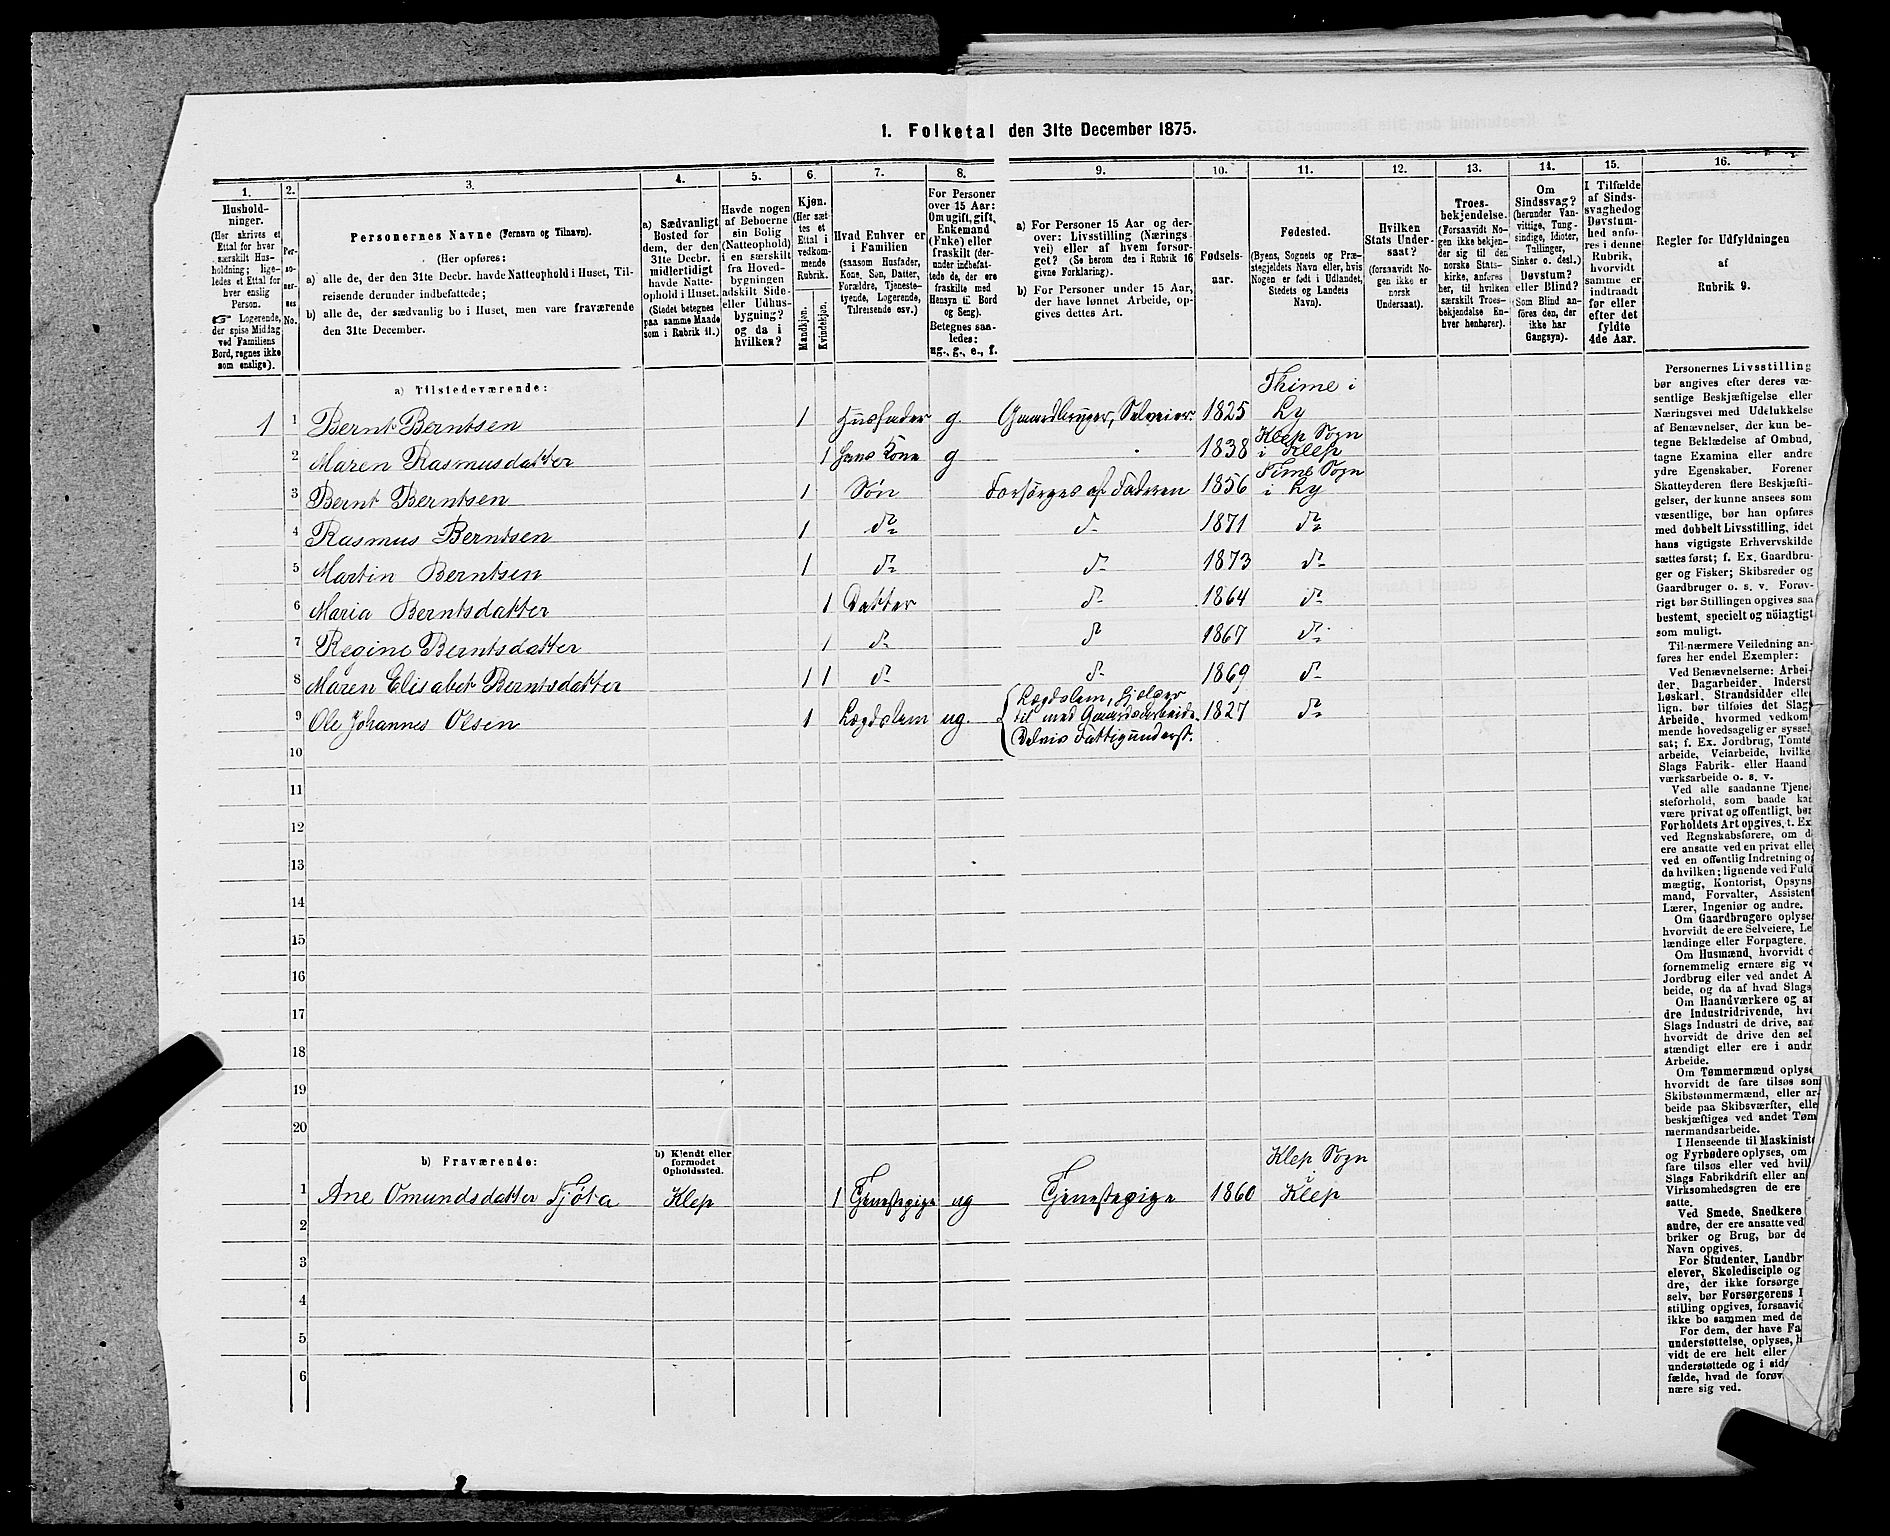 1. Folketal den 31te December 1875.
1.
2.
3.
4.
5.
6.
7.
8.
9.
10.
11.
12.
13.
14.
15.
16.
Hushold-
ninger.
(Her skrives et
Ettal for hver
særskilt Hus-
holdning; lige-
ledes et Ettal for
hver enslig
Person.
☞ Logerende,
der spise Middag
ved Familiens
Bord, regnes ikke
som enslige).
Per-
so-
ner-
nes
No.
Personernes Navne (Fornavn og Tilnavn).
(Her opføres:
a) alle de, der den 31te Decbr. havde Natteophold i Huset, Til-
reisende derunder indbefattede;
b) alle de, der sædvanlig bo i Huset, men vare fraværende
den 31te December.
a) Sædvanligt
Bosted for
dem, der den
31te Decbr.
midlertidigt
havde Natte-
ophold i Huset.
(Stedet betegnes
paa samme Maade
som i Rubrik 11.)
Havde nogen
af Beboerne
sin Bolig
(Natteophold)
i en særskilt
fra Hoved-
bygningen
adskilt Side-
eller Udhus-
bygning?
og da i
hvilken?
Kjøn.
(Her sæt-
tes et
Ettal i
vedkom-
mende
Rubrik.
Mandkjøn.
Kvindekjøn.
Hvad Enhver er
i Familien
(saasom Husfader,
Kone, Søn, Datter,
Forældre, Tjeneste-
tyende, Logerende,
Tilreisende osv.)
For Personer
over 15 Aar:
Om ugift, gift,
Enkemand
(Enke) eller
fraskilt (der-
under indbefat-
tede de, der ere
fraskilte med
Hensyn til Bord
og Seng).
Betegnes saa-
ledes:
ug., g., e., f.
a) For Personer 15 Aar og der-
over: Livsstilling (Nærings
vei) eller af hvem forsør-
get? (Se herom den i Rubrik 16
givne Forklaring).
b) For Personer under 15 Aar,
der have lønnet Arbeide, op-
gives dettes Art.
Fødsels-
aar.
Fødested.
(Byens, Sognets og Præ-
stegjeldets Navn eller, hvis
Nogen er født i Udlandet,
Stedets og Landets
Navn).
Hvilken
Stats Under-
saat?
(forsaavidt No-
gen ikke er
norsk
Undersaat).
Troes-
bekjendelse.
(Forsaavidt No-
gen ikke bekjen-
der sig til den
norske Stats-
kirke, anføres
her, til hvilken
særskilt Troes-
bekjendelse En-
hver henhører).
Om
Sindssvag?
(herunder Van-
vittige, Tung-
sindige, Idioter,
Tullinger,
Sinker o. desl.)
Døvstum?
eller Blind?
(Som Blind an-
føres den, der
ikke har
Gangsyn).
I Tilfælde
af Sinds-
svaghed og
Døvstum-
hed anfø-
res i denne
Rubrik,
hvorvidt
samme er
indtraadt
før eller
efter det
fyldte
4de Aar.
Regler for Udfyldningen
af
Rubrik 9.
a) Tilstedeværende:
Thime i
1 1 Bernt Berntsen 1 Husfader g. Gaardbruger, Selveier. 1825 Ly
Klep Sogn
2 Maren Rasmusdatter 1 Hans Kone g 1838 i Klep
Time Sogn
3 Bernt Berntsen 1 Søn Forsørges af Faderen 1856 i Ly
4 Rasmus Berntsen 1 do do 1871 do
5 Martin Berntsen 1 do do 1873 do
6 Maria Berntsdatter 1 Datter do 1864 do
7 Regine Berntsdatter 1 do do 1867 do
8 Maren Elisabet Berntsdatter 1 1 do do 1869 do
Lægdslem, hjelper
9 Ole Johannes Olsen 1 Lægdslem ug. til med Gaardsarbeide. 1827 do
Delvis Fattigunderst.
10
11
12
13
14
15
16
17
18
19
20
b) Fraværende:
b) Kjendt eller
formodet
Opholdssted.
Klep Sogn
1 Ane Omundsdatter Tjøta Klep 1 Tjenestepige ug Tjenestepige 1860 Klep
2
3
4
5
6
Personernes Livsstilling
bør angives efter deres væ-
sentlige Beskjæftigelse eller
Næringsvei med Udelukkelse
af Benævnelser, der kun be-
tegne Beklædelse af Ombud,
tagne Examina eller andre
ydre Egenskaber. Forener
Skatteyderen flere Beskjæfti-
gelser, der kunne ansees som
væsentlige, bør han opføres
med dobbelt Livsstilling, idet
hans vigtigste Erhvervskilde
sættes først; f. Ex. Gaardbru-
ger og Fisker; Skibsreder og
Gaardbruger o. s. v. Forøv-
rigt bør Stillingen opgives saa
bestemt, specielt og nöiagtigt
som muligt.
Til nærmere Veiledning an-
føres her endel Exempler:
Ved Benævnelserne: Arbei-
der, Dagarbeider, Inderst
Løskarl, Strandsidder eller
lign. bør tilføies det Slag
Arbeide, hvormed vedkom
mende hovedsagelig er syssel
sat; f. Ex. Jordbrug, Tomte
arbeide, Veiarbeide, hvilke
Slags Fabrik- eller Haand
værksarbeide o. s. v.
Ved alle saadanne Tjene
steforhold, som baade kan
være privat og offentligt, bør
Forholdets Art opgives, t. Ex
ved Regnskabsførere, om d
ere ansatte ved en privat elle
ved en offentlig Indretning o
da hvilken; lignende ved Fuld
mægtig, Kontorist, Opsyns
mand, Forvalter, Assistent
Lærer, Ingeniør og andre.
Om Gaardbrugere oplyse
hvorvidt de ere Selveiere, Le
lændinge eller Forpagtere.
Om Husmænd, hvorvidt d
fornemmelig ernære sig ve
Jordbrug eller ved andet A
beide, og da af hvad Slags
Om Haandværkere og an
dre Industridrivende, hv
Slags Industri de drive, sa
hvorvidt de drive den sel
stændigt eller ere i andr
Arbeide.
Om Tømmermænd oplyse
hvorvidt de fare tilsøs som
Skibstømmermænd, eller ar-
beide paa Skibsværfter, elle
beskjæftiges ved andet Tøm
mermandsarbeide.
I Henseende til Maskiniste
og Fyrbødere oplyses, om
fare tilsøs eller ved hvil
Slags Fabrikdrift eller an
Virksomhedsgren de ere
satte.
Ved Smede, Snedkere
andre, der ere ansatte ved
briker og Brug, bør de
Navn opgives.
For Studenter, Landbr
elever, Skoledisciple og
dre, der ikke forsørge
selv, bør Forsørgerens L
stilling opgives, forsaavid
ikke bo sammen med de
For dem, der have Fa
understøttelse, oplyses, h
vidt de ere helt eller
understøttede og i sids
fælde, hvad de forøv
nære sig ved.